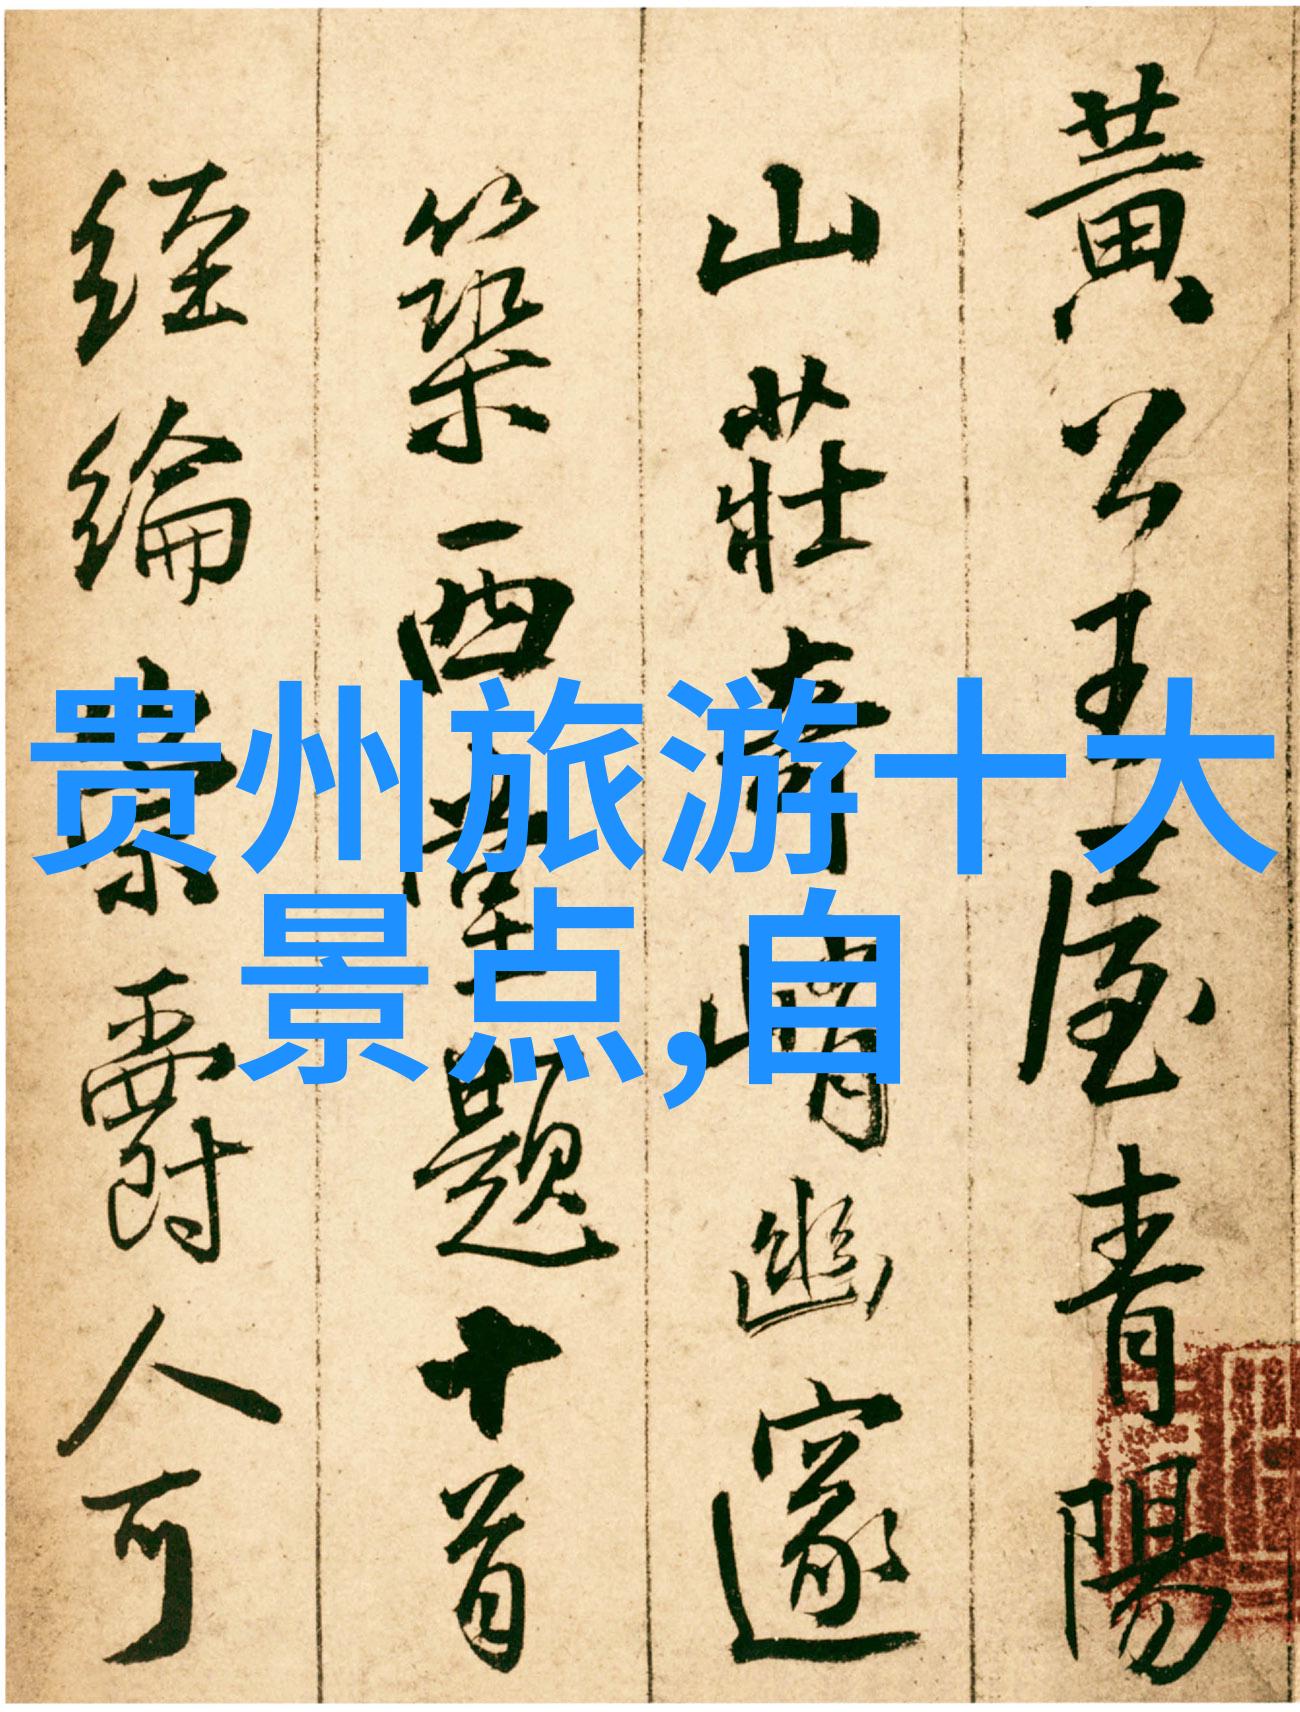 黃公王屋青陽
山莊奇峭幽邃
築西堂題十首
經綸素爵人可
贵州旅游十大
景点,自